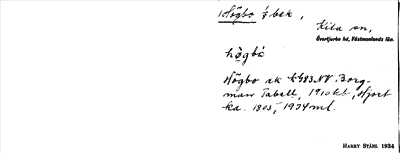 Högbo fbek,
Kila sn,
Övertjurbo hd, Västmanlands län.
högbo
Högbo ek K983 NV Borg-
man Tabell, 1910 kt, Hjort
ka. 1805, 1934 ml.
HARRY STÅHL 1934